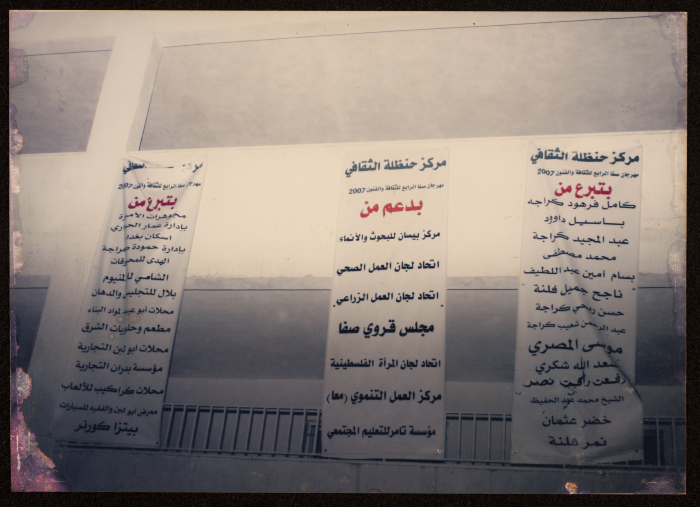 مركز حنظلة الثقافي
مهرجان صفا الرابع للثقافة والفنون 2007
بتبرع من
كامل فرهود كراجه
باسيل داوود
عبد المجيد كراجة
محمد مصطفى
بسام امين عبد اللطيف
ناجح جميل فلنة
حسن ربحي كراجة
عبد الرحمن شعيب كراجة
موسى المصري
سعد الله شكري
رفعت رأفت نصر
الشيخ محمد عبد الحفيظ
خضر عثمان
نمر فلنة
مركز حنظلة الثقافي
مهرجان صفا الرابع للثقافة والفنون 2007
بدعم من
مركز بيسان للبحوث والأنماء
اتحاد لجان العمل الصحي
اتحاد لجان العمل الزراعي
مجلس قروي صفا
اتحاد لجان المرأة الفلسطينية
مركز العمل التنموي (معا)
مؤسسة تامر للتعليم المجتمعي
مركز
مهرجان صفا الرابع للثقافة والفنون 2007
بتبرع من
مجوهرات الأميرة
بادارة عمار الحاري
اسكان بغداد
بادارة حمودة كراجة
الهدى للمحروقات
الشامي للالمنيوم
بلال للتجليس والدهان
محلات ابو عبد لمواد البناء
مطعم وحلويات الشرق
محلات ابو لبن التجارية
مؤسسة بدران التجارية
محلات كراكيب للألعاب
معرض ابو لبن والفقيه للسيارات
بيتزا كورنر